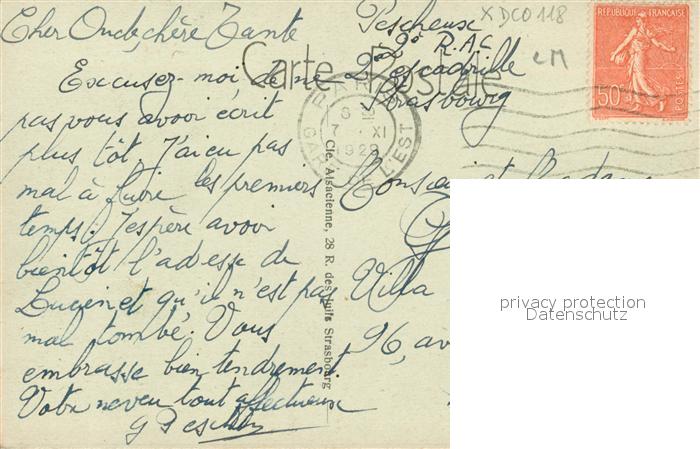 Cher Oncle, chère Tante
Excusez-moi de ne
pas vous avoir écrit
plus tôt. J'ai eu pas
mal à faire les premiers
temps. J'espère avoir
bientôt l'adresse de
Lucien et qu'il n'est pas
mal tombé. Vous
embrasse bien tendrement.
Votre neveu tout affectueux
G
Pescheux
2e R.A.C
2e escadrille
Strasbourg
XDC0118
LM
Carte Postale
REPUBLIQUE FRANÇAISE
POSTES
50c
PARIS
7 XI
1929
GARE DE L'EST
Cie. Alsacienne, 28 R. des Juifs Strasbourg
Monsieur et Madame
Villa
96, av
privacy protection
Datenschutz